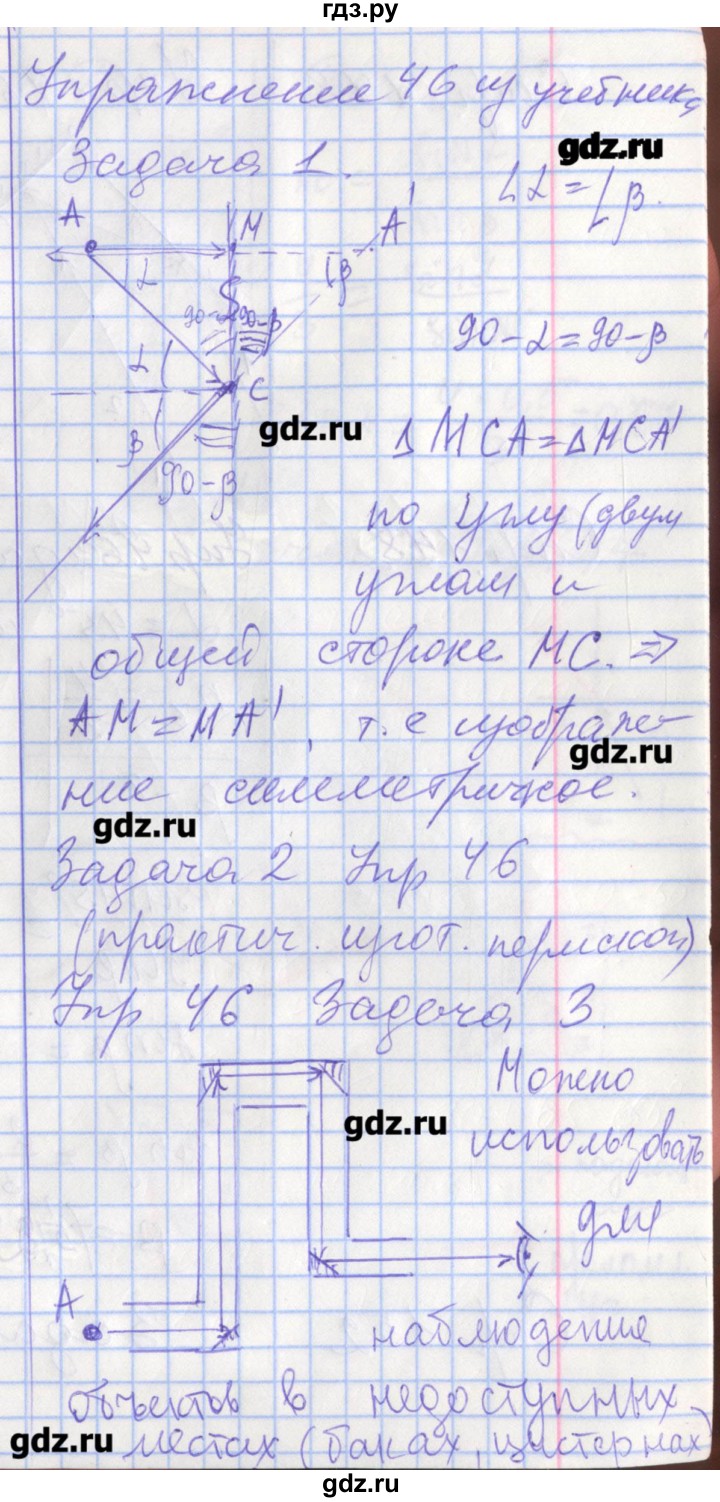 гдз.ру
Упражнение 46 из учебника
gdz.ru
Задача 1.
∠α = ∠β.
A M A'
α β
90-α 90-β
90-α=90-β
α C
gdz.ru
β
90-β
Δ MCA=ΔMCA'
по углу (двум
углам и
общей стороне MC. ⇒
AM=MA', т.е изображе-
gdz.ru
ние симметричное.
gdz.ru
Задача 2 Упр 46
(практич. изгот. перископ)
Упр 46 Задача 3
Можно
gdz.ru
использовать
для
A
наблюдение
объектов в недоступных
gdz.ru
местах (баках, цистернах)
gdz.ru